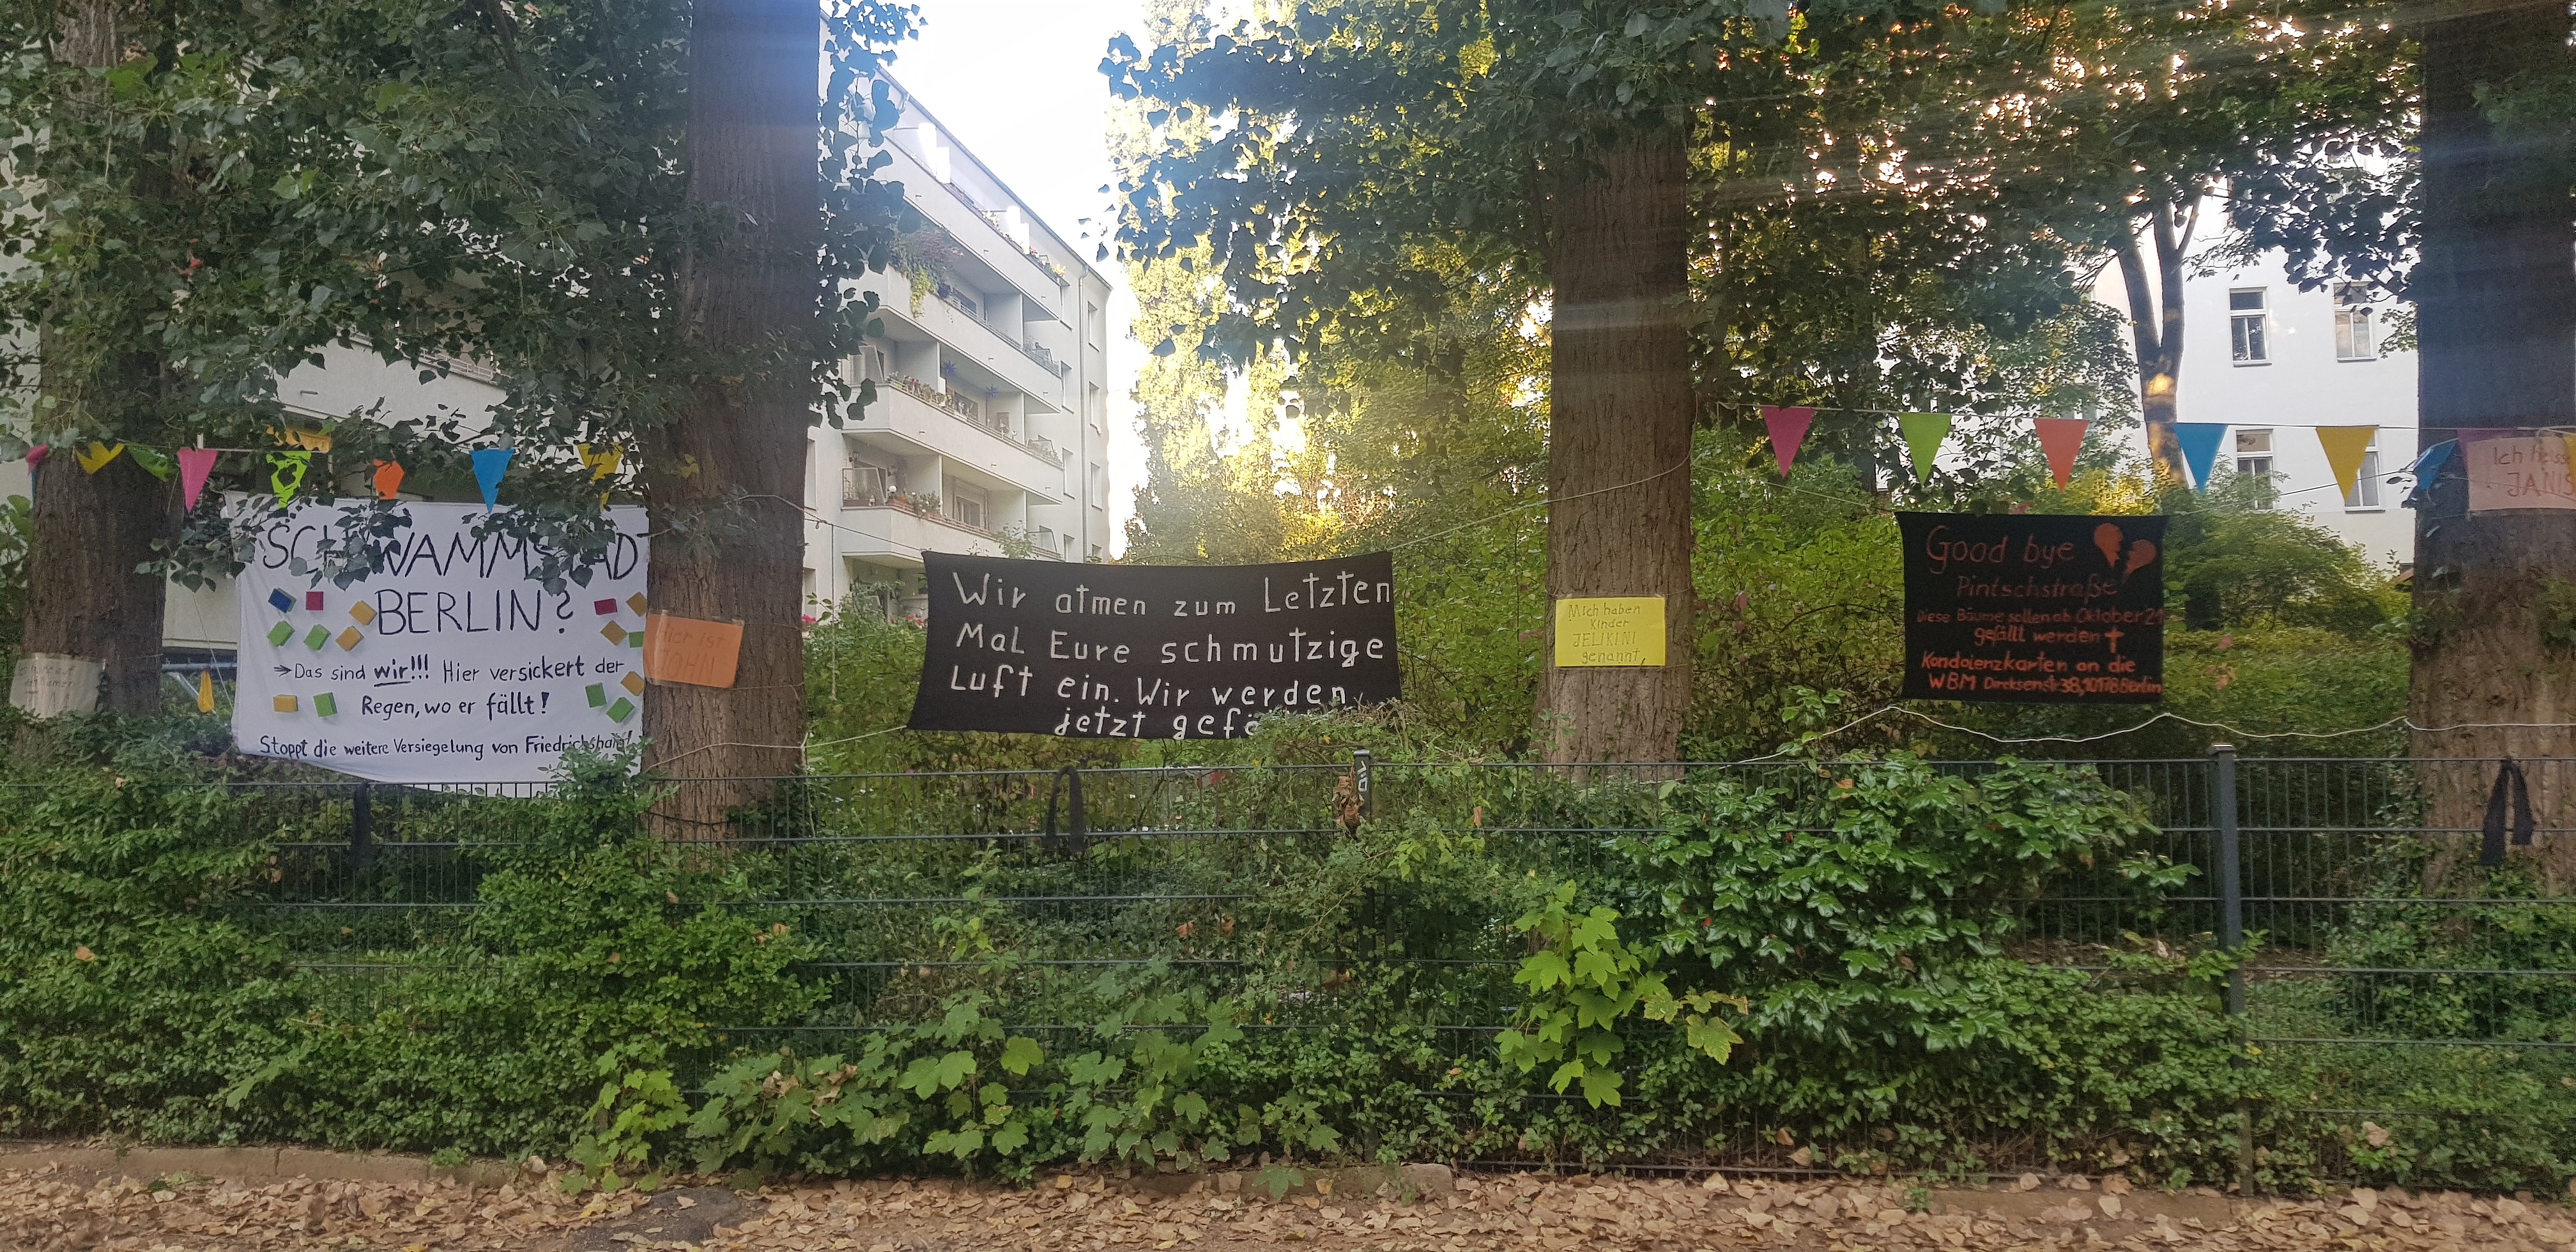 SCHWAMMSTADT
BERLIN?
→Das sind wir!!! Hier versickert der
Regen, wo er fällt!
Stoppt die weitere Versiegelung von Friedrichshain!
Hier ist
JOHN
Wir atmen zum Letzten
Mal Eure schmutzige
Luft ein. Wir werden
jetzt
Mich haben
Kinder
JELIKINI
genannt,
Good bye
Pintschstraße
Diese Bäume sollen ab Oktober 21
gefällt werden
Kondolenzkarten an die
WBM Dircksenstr 38, 10178 Berlin
Ich heisse
JANIS